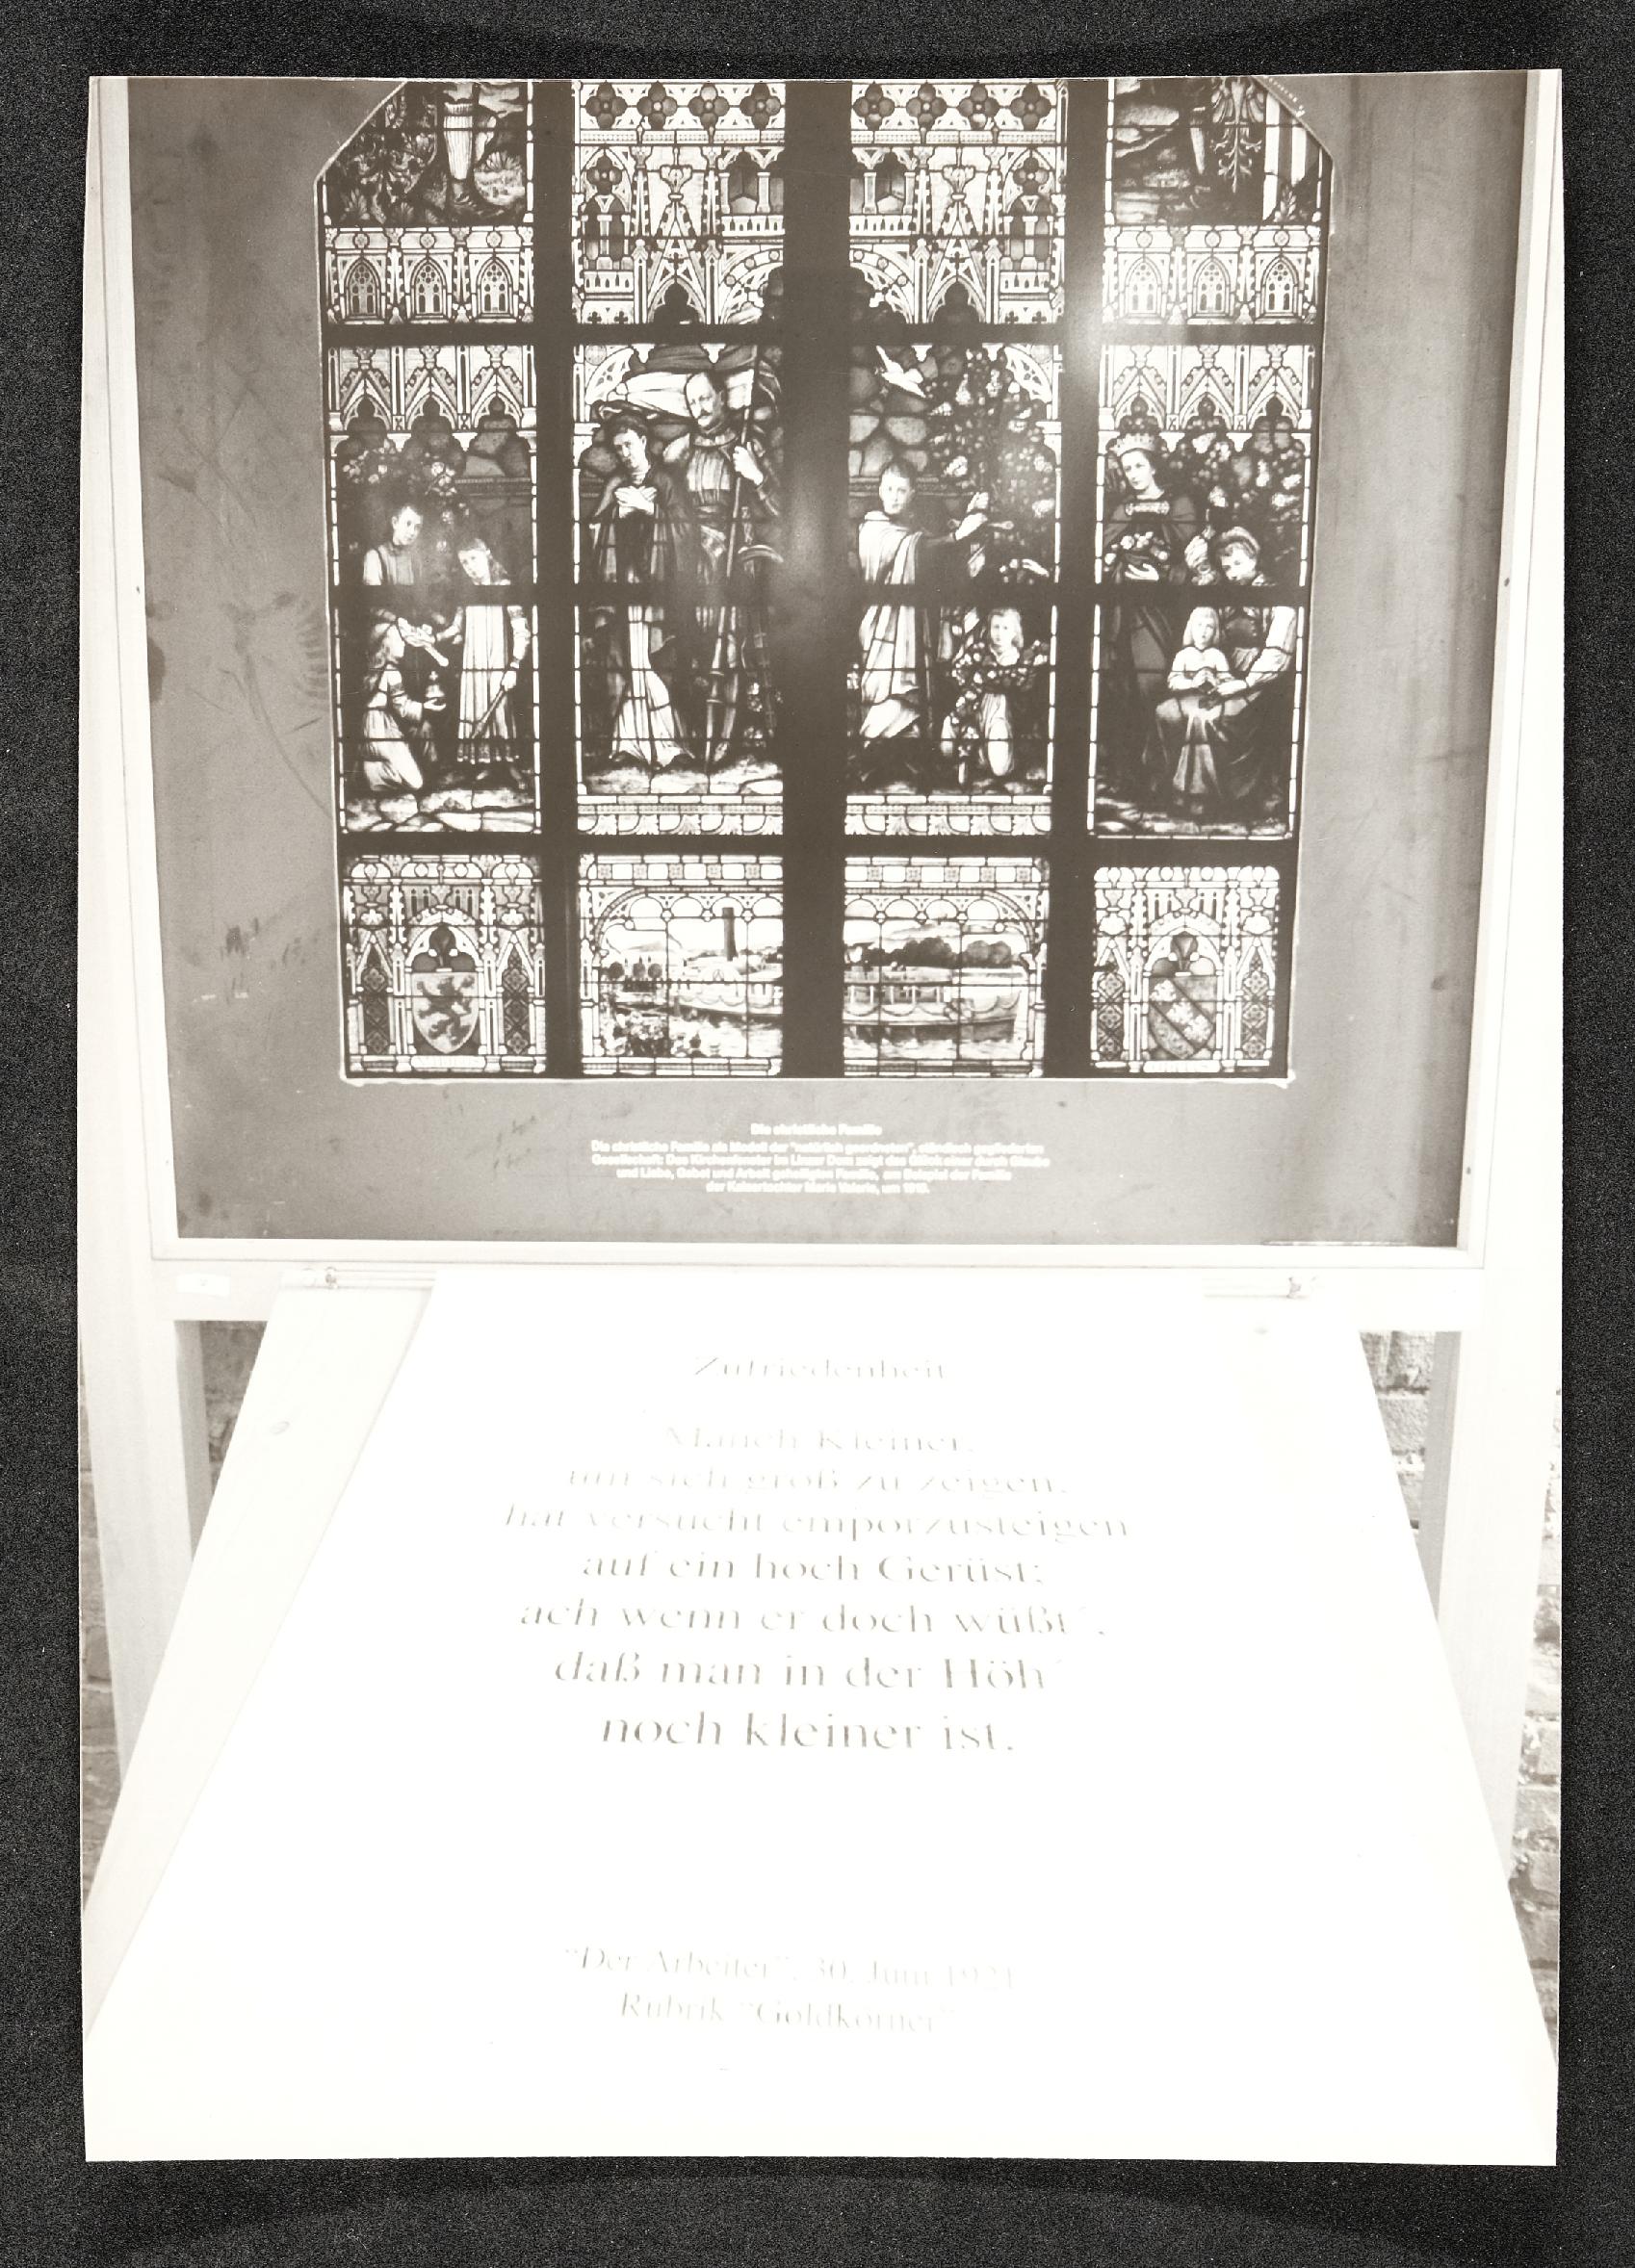 Die christliche Familie
Die christliche Familie als Modell der "natürlich geordneten", ständisch gegliederten
Gesellschaft: Das Kirchenfenster im Linzer Dom zeigt das Glück einer durch Glaube
und Liebe, Gebet und Arbeit geheiligten Familie, am Beispiel der Familie
der Kaisertochter Marie Valerie, um 1910.
Zufriedenheit
Manch Kleiner,
um sich groß zu zeigen,
hat versucht emporzusteigen
auf ein hoch Gerüst;
ach wenn er doch wüßt´,
daß man in der Höh´
noch kleiner ist.
"Der Arbeiter", 30. Juni 1921
Rubrik "Goldkörner"